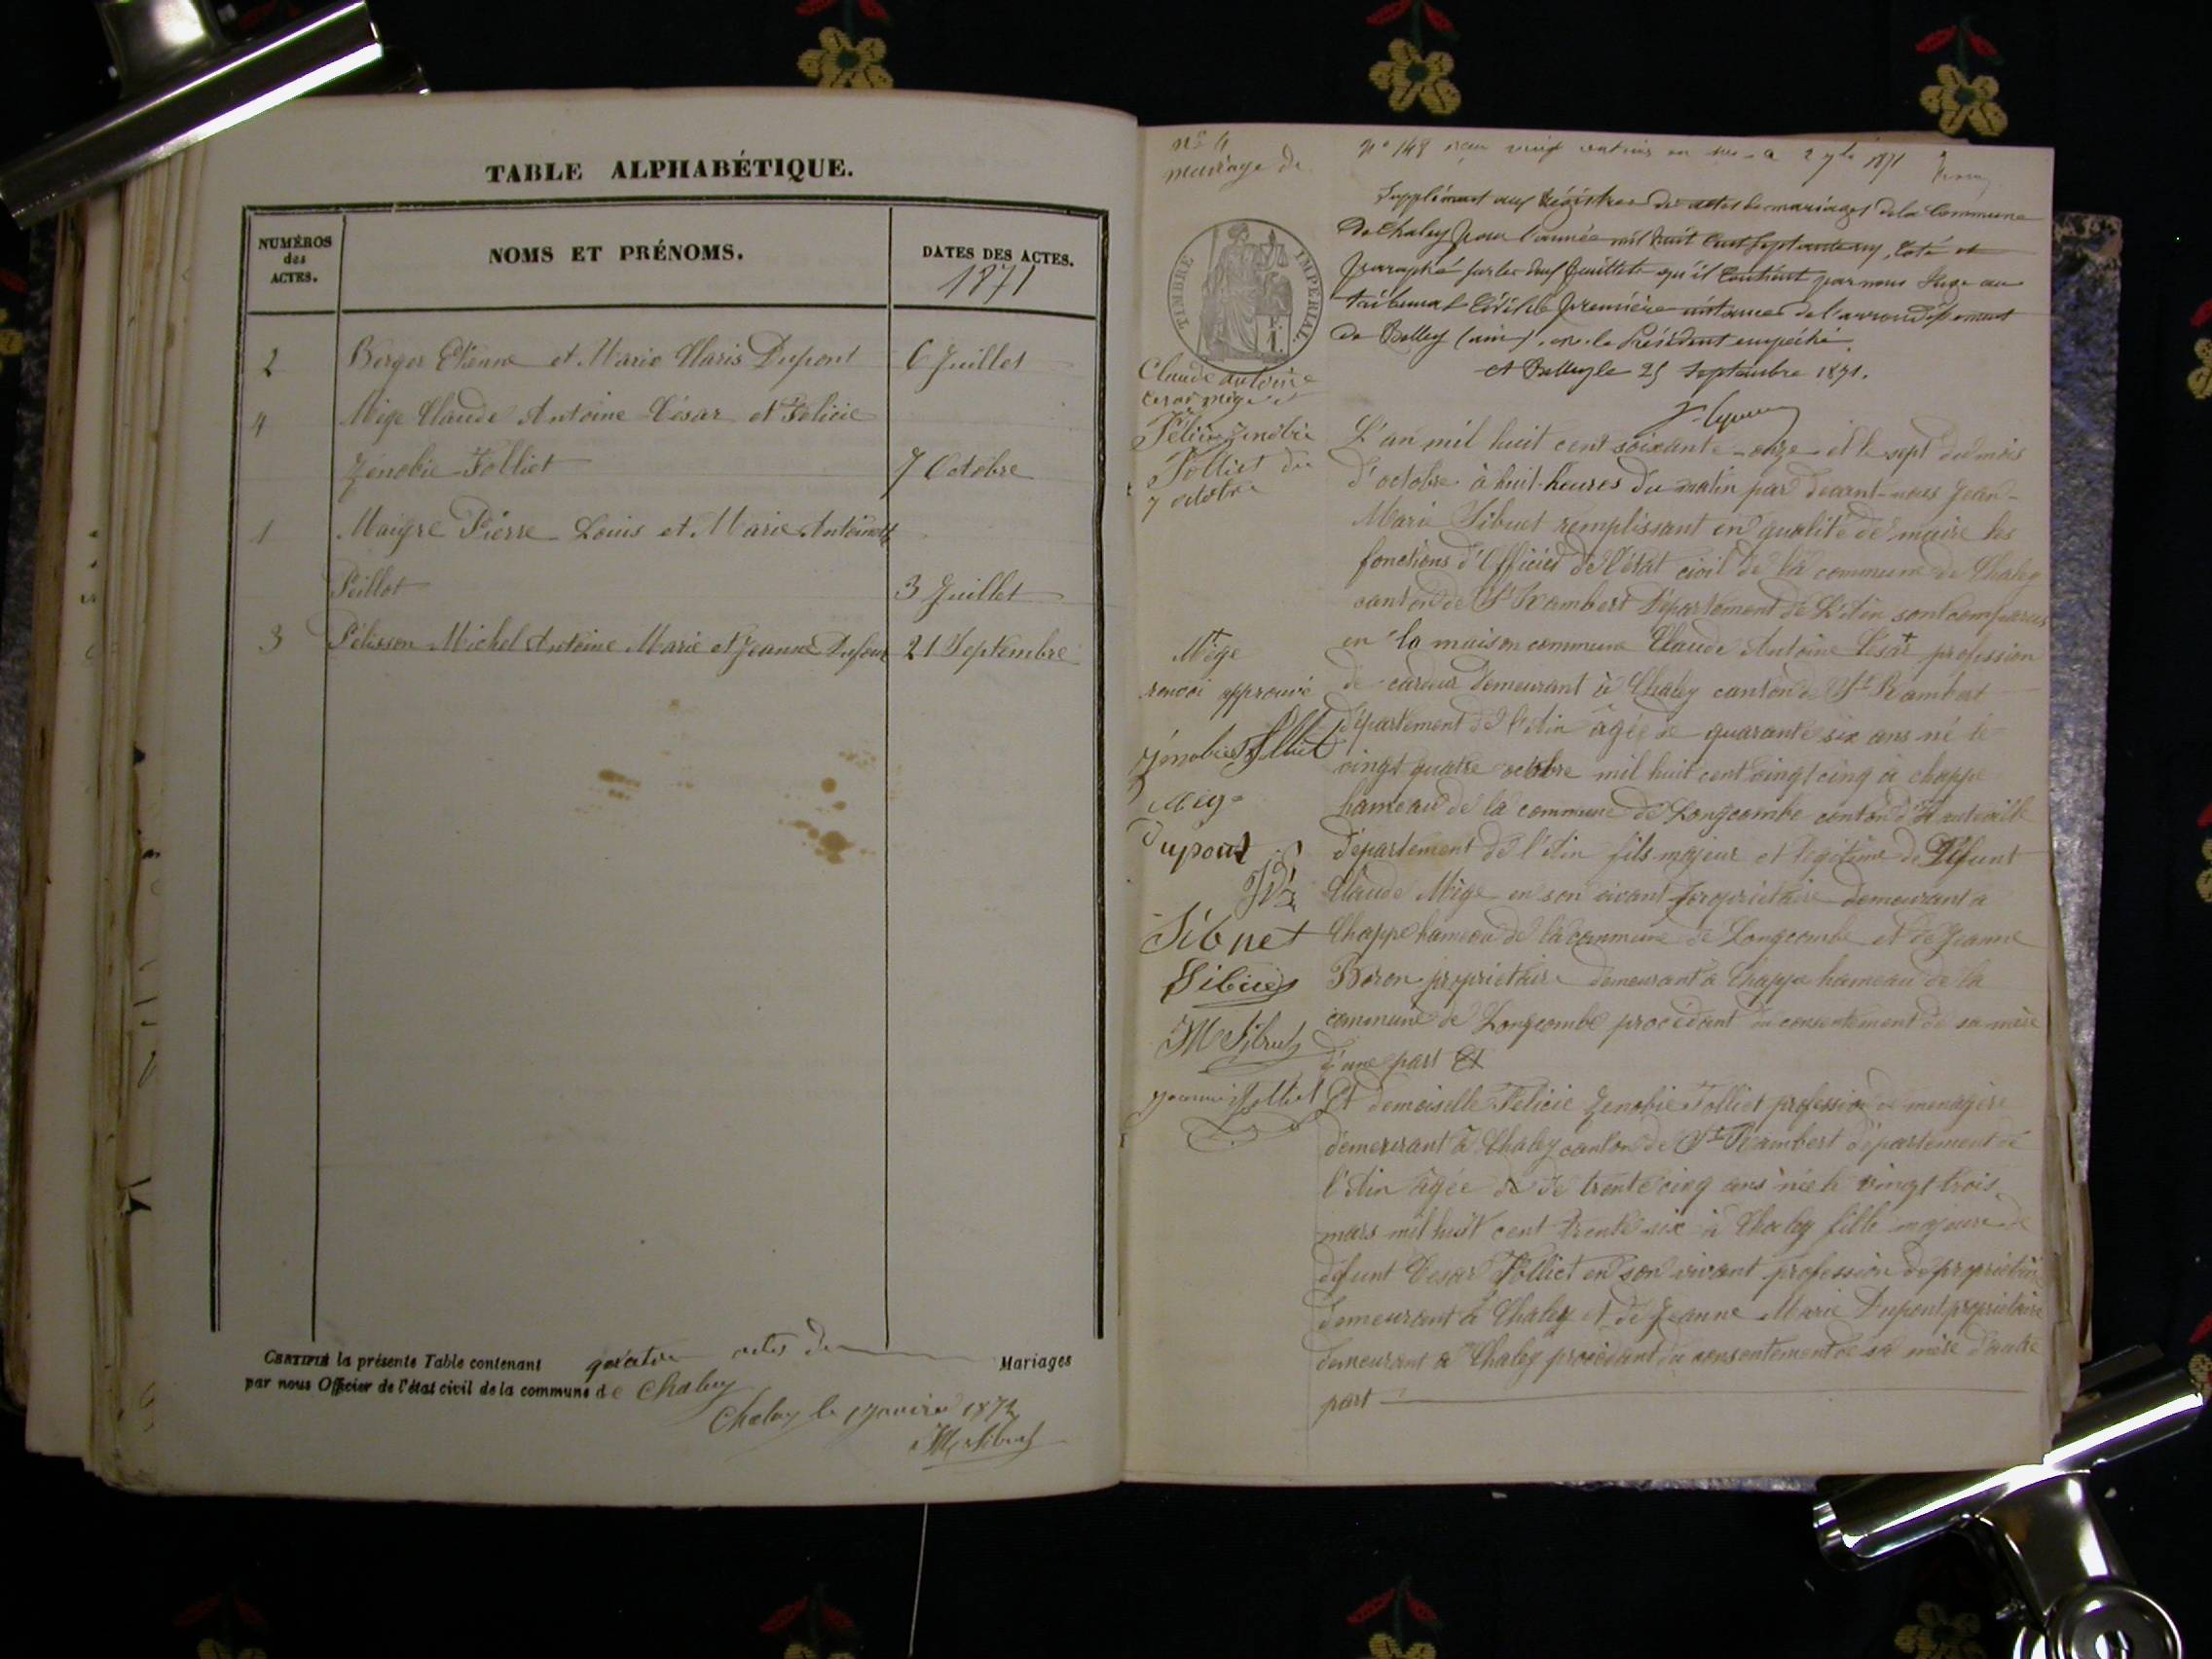 TABLE ALPHABÉTIQUE.
NUMÉROS des ACTES.
NOMS ET PRÉNOMS.
DATES DES ACTES.
1871
2 Berger Etienne et Marie Claris Dupont 6 Juillet
4 Mège Claude Antoine César et Félicie
Zénobie Folliet 7 Octobre
1 Maigre Pierre Louis et Marie Antoinette
Peillot 3 Juillet
3 Pélisson Michel Antoine Marie et Jeanne Dufour 21 Septembre
CERTIFIÉ la présente Table contenant quatre actes de Mariages
par nous Officier de l'état civil de la commune de Chaley
Chaley le 1 janvier 1872
JM Sibuet
n° 4
mariage de
TIMBRE IMPÉRIAL
Claude antoine
Cesar mège et
Félicie Zénobie
Folliet du
7 octobre
Mège
renvoi approuvé
Zénobie Folliet
Mège
Dupont
Sibuet
Sibuet
JM Sibuet
Folliet
n° 148 1871
Supplément aux Régistres des actes de mariages de la Commune
de Chaley pour l'année mil huit Cent septante un, Coté et
paraphé sur les deux feuillets qu'il Contient par nous Juge au
tribunal Civil de première instance de l'arrondissement
de Belley (ain), le Président empêché.
A Belley le 25 Septembre 1871.
L'an mil huit cent soixante-onze et le sept du mois
d'octobre à huit heures du matin par devant-nous Jean-
Marie Sibuet remplissant en qualité de maire les
fonctions d'Officier de l'état civil de la commune de Chaley
canton de St Rambert Département de L'Ain sont comparus
en la maison commune Claude Antoine César + profession
de cardeur demeurant à Chaley canton de St Rambert
département de l'Ain âgé de quarante six ans né le
vingt quatre octobre mil huit cent vingt cinq à chappe
hameau de la commune de Longecombe canton d'Hauteville
département de l'Ain fils majeur et légitime de Défunt
Claude Mège en son vivant propriétaire demeurant à
Chappe hameau de la commune de Longecombe et de Jeanne
Boron propriétaire demeurant à Chappe hameau de la
commune de Longecombe procédant du consentement de sa mère
d'une part Et
Et demoiselle Félicie Zenobie Folliet profession de menagère
demeurant à Chaley canton de St Rambert département de
l'Ain âgée de de trente cinq ans née le vingt trois
mars mil huit cent trente six à Chaley fille majeure de
défunt César Folliet en son vivant profession de propriétaire
demeurant à Chaley et de Jeanne Marie Dupont propriétaire
demeurant à Chaley procédant du consentement de sa mère d'autre
part